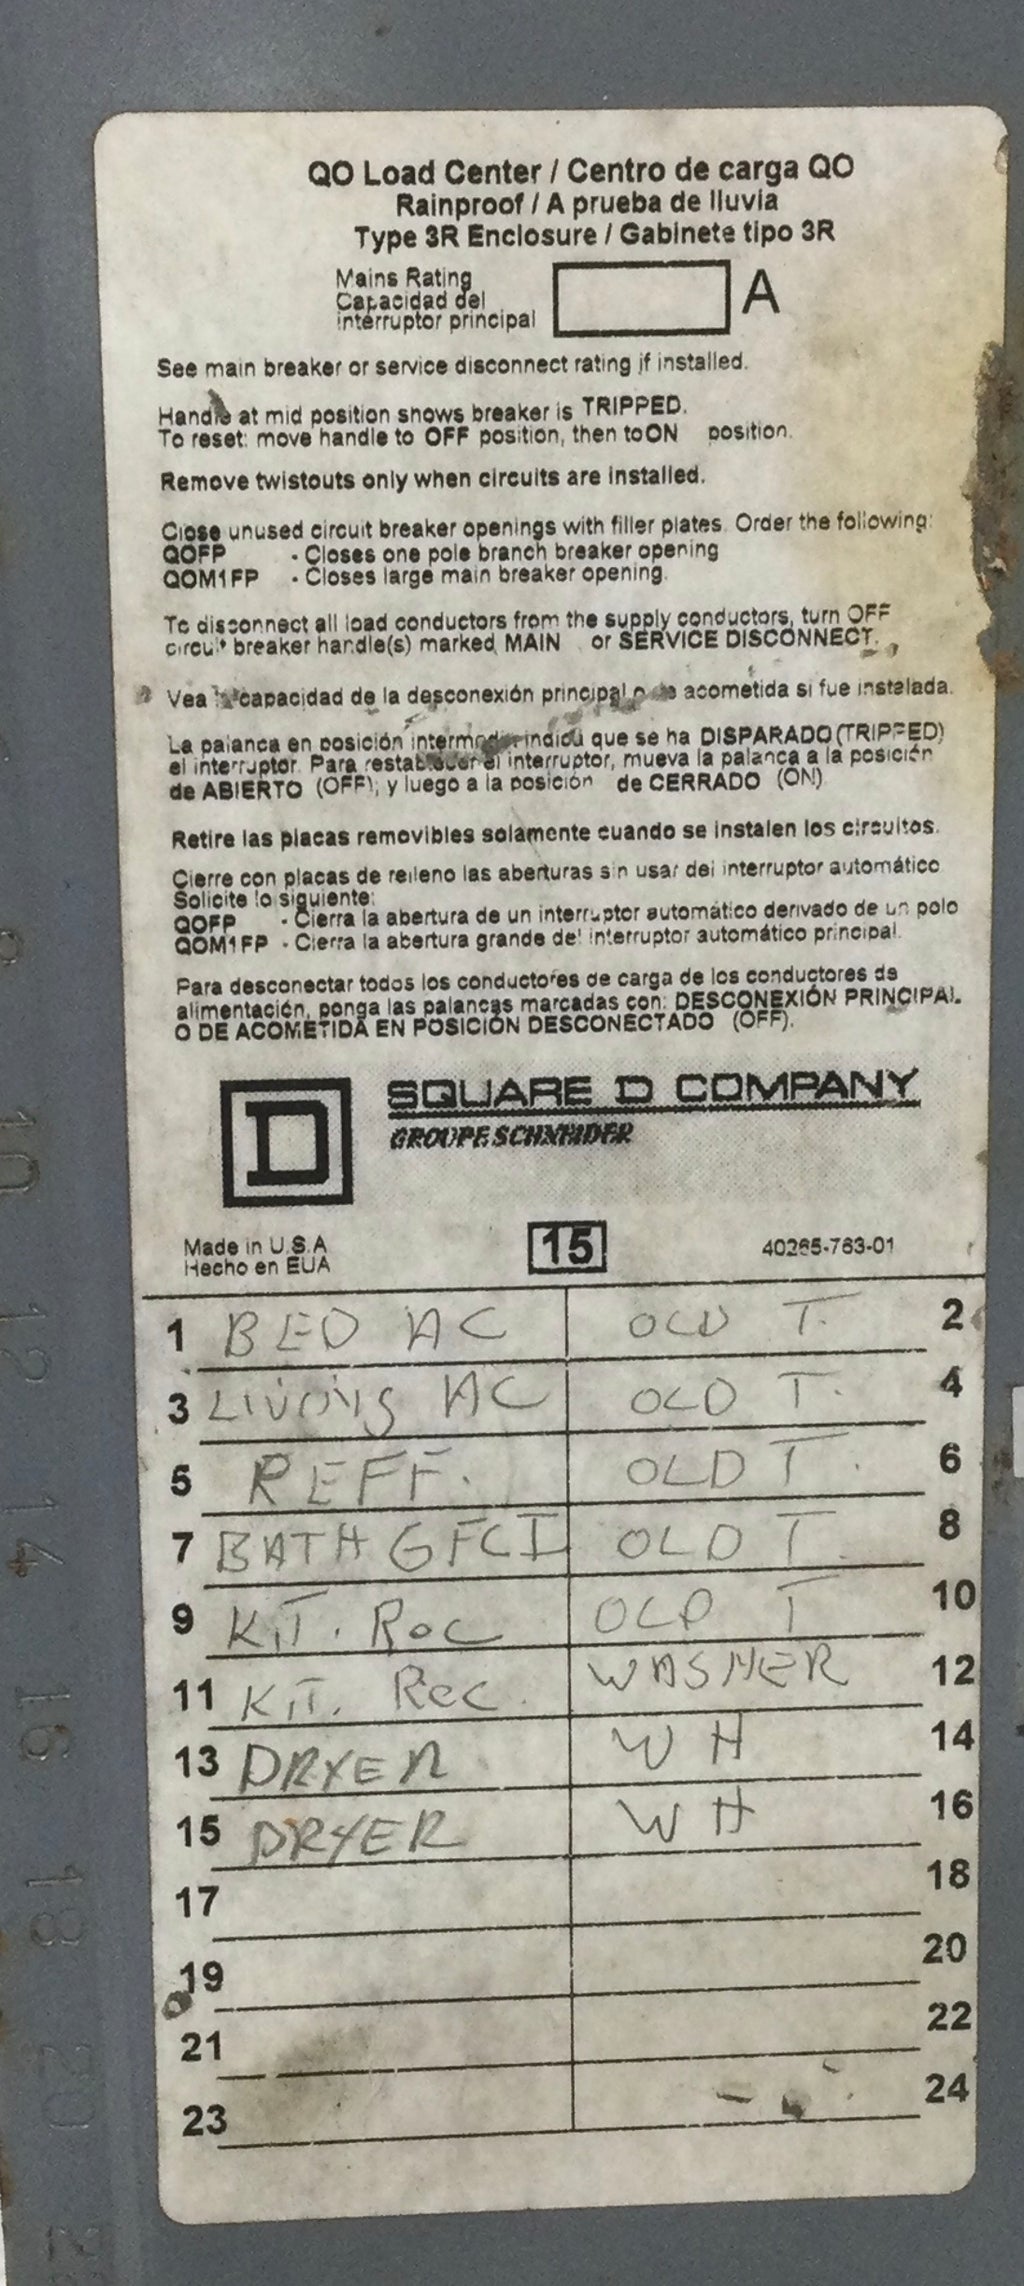 QO Load Center / Centro de carga QO
Rainproof / A prueba de lluvia
Type 3R Enclosure / Gabinete tipo 3R
Mains Rating
Capacidad del
interruptor principal
A
See main breaker or service disconnect rating if installed.
Handle at mid position shows breaker is TRIPPED.
To reset: move handle to OFF position, then to ON position.
Remove twistouts only when circuits are installed.
Close unused circuit breaker openings with filler plates. Order the following:
QOFP - Closes one pole branch breaker opening
QOM1FP - Closes large main breaker opening.
To disconnect all load conductors from the supply conductors, turn OFF
circuit breaker handle(s) marked MAIN or SERVICE DISCONNECT.
Vea la capacidad de la desconexión principal o de acometida si fue instalada.
La palanca en posición intermedia indica que se ha DISPARADO (TRIPPED)
el interruptor. Para restablecer el interruptor, mueva la palanca a la posición
de ABIERTO (OFF); y luego a la posición de CERRADO (ON)
Retire las placas removibles solamente cuando se instalen los circuitos.
Cierre con placas de relleno las aberturas sin usar del interruptor automático
Solicite lo siguiente:
QOFP - Cierra la abertura de un interruptor automático derivado de un polo
QOM1FP - Cierra la abertura grande del interruptor automático principal.
Para desconectar todos los conductores de carga de los conductores de
alimentación, ponga las palancas marcadas con: DESCONEXIÓN PRINCIPAL
O DE ACOMETIDA EN POSICIÓN DESCONECTADO (OFF).
D SQUARE D COMPANY
GROUPE SCHNEIDER
Made in U.S.A
Hecho en EUA
15
40265-763-01
1 BED AC OLD T. 2
3 LIVING AC OLD T. 4
5 REFF. OLD T. 6
7 BATH GFCI OLD T. 8
9 KIT. REC OLD T 10
11 KIT. REC. WASHER 12
13 DRYER W H 14
15 DRYER W H 16
17 18
19 20
21 22
23 24
10
12
14
16
18
20